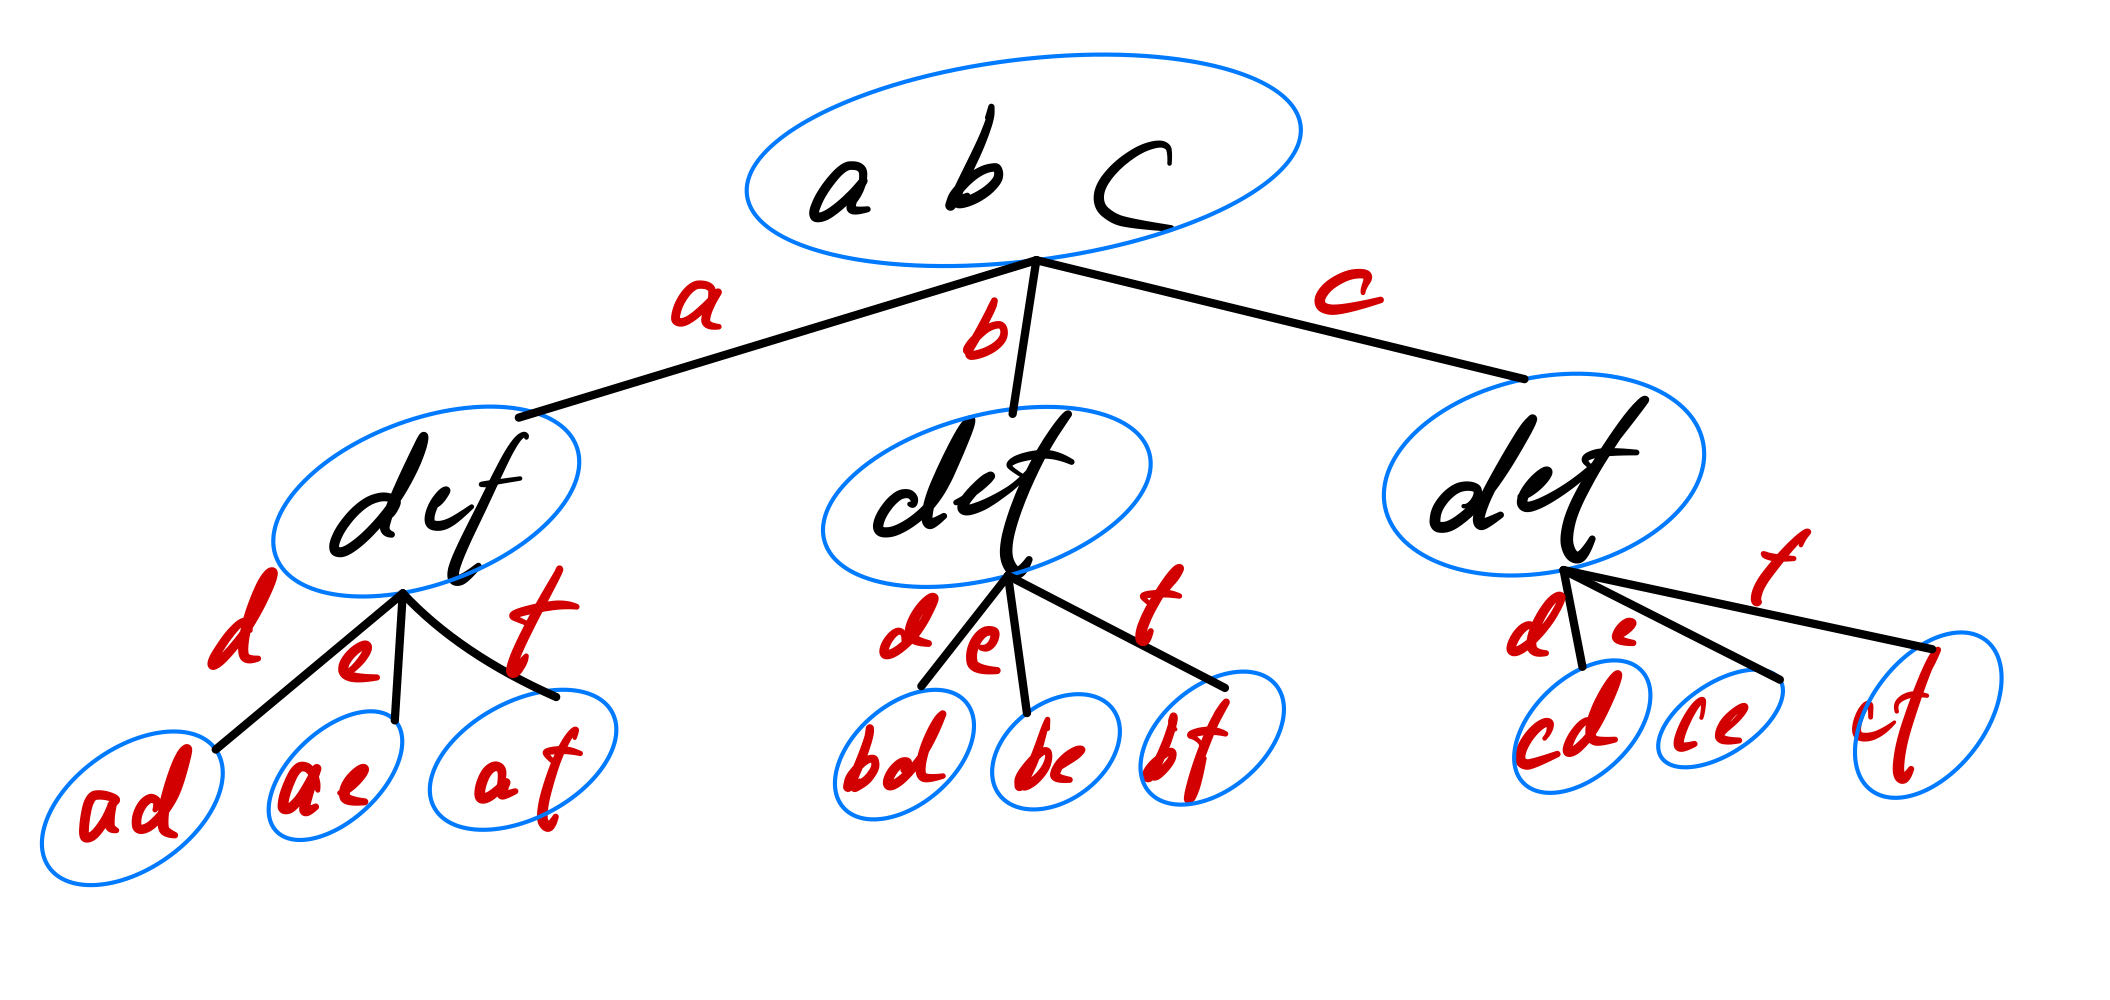 a b c
a b c
def def def
d e f d e f d e f
ad ae af bd be bf cd ce cf